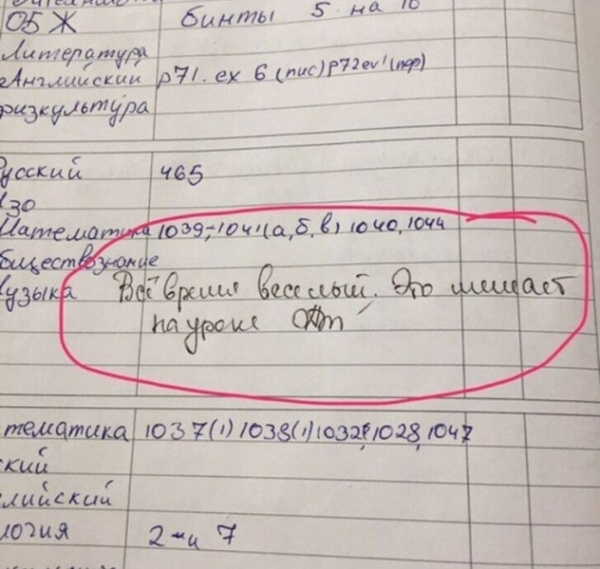 ОБЖ бинты 5 на 10
Литература
Английский р71. ex 6 (пис) р72 ex 1 (пер)
физкультура
русский 465
Изо
Математика 1039, 1041 (а, б, в) 1040, 1044
обществознание
музыка Всё время веселый. Это мешает
на уроке
тематика 1037(1) 1038(1) 1032, 1028, 1047
ский
лийский
логия 2 и 7